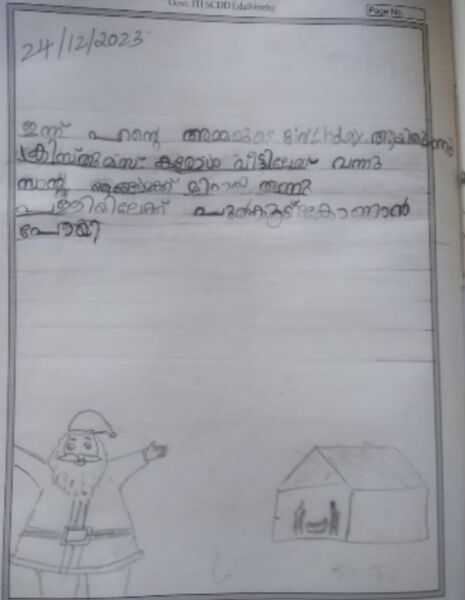 Govt. ITI SCDD Edathiruthy
Page No.
24/12/2023
ഇന്ന് എന്റെ അമ്മയുടെ Birthday ആയിരുന്നു
ക്രിസ്തുമസ് കരോൾ വീട്ടിലേയ് വന്നു
സാന്റ ഞങ്ങൾക്ക് മിഠായി തന്നു
പള്ളിയിലേക്ക് പുൽക്കൂട് കാണാൻ
പോയി